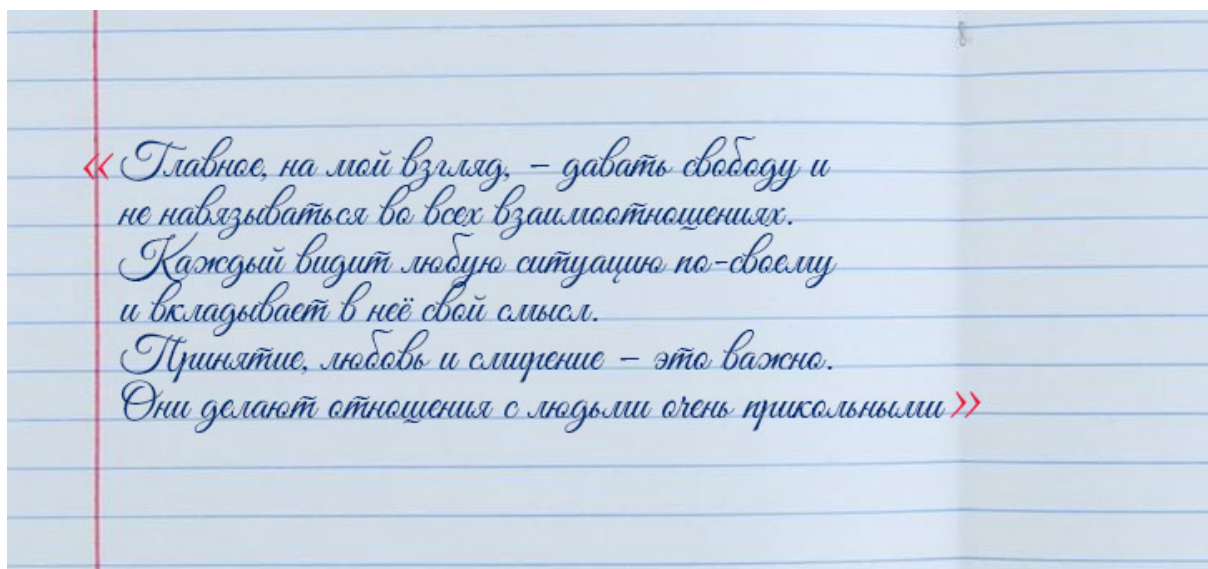 «Главное, на мой взгляд, – давать свободу и
не навязываться во всех взаимоотношениях.
Каждый видит любую ситуацию по-своему
и вкладывает в неё свой смысл.
Принятие, любовь и смирение – это важно.
Они делают отношения с людьми очень прикольными»